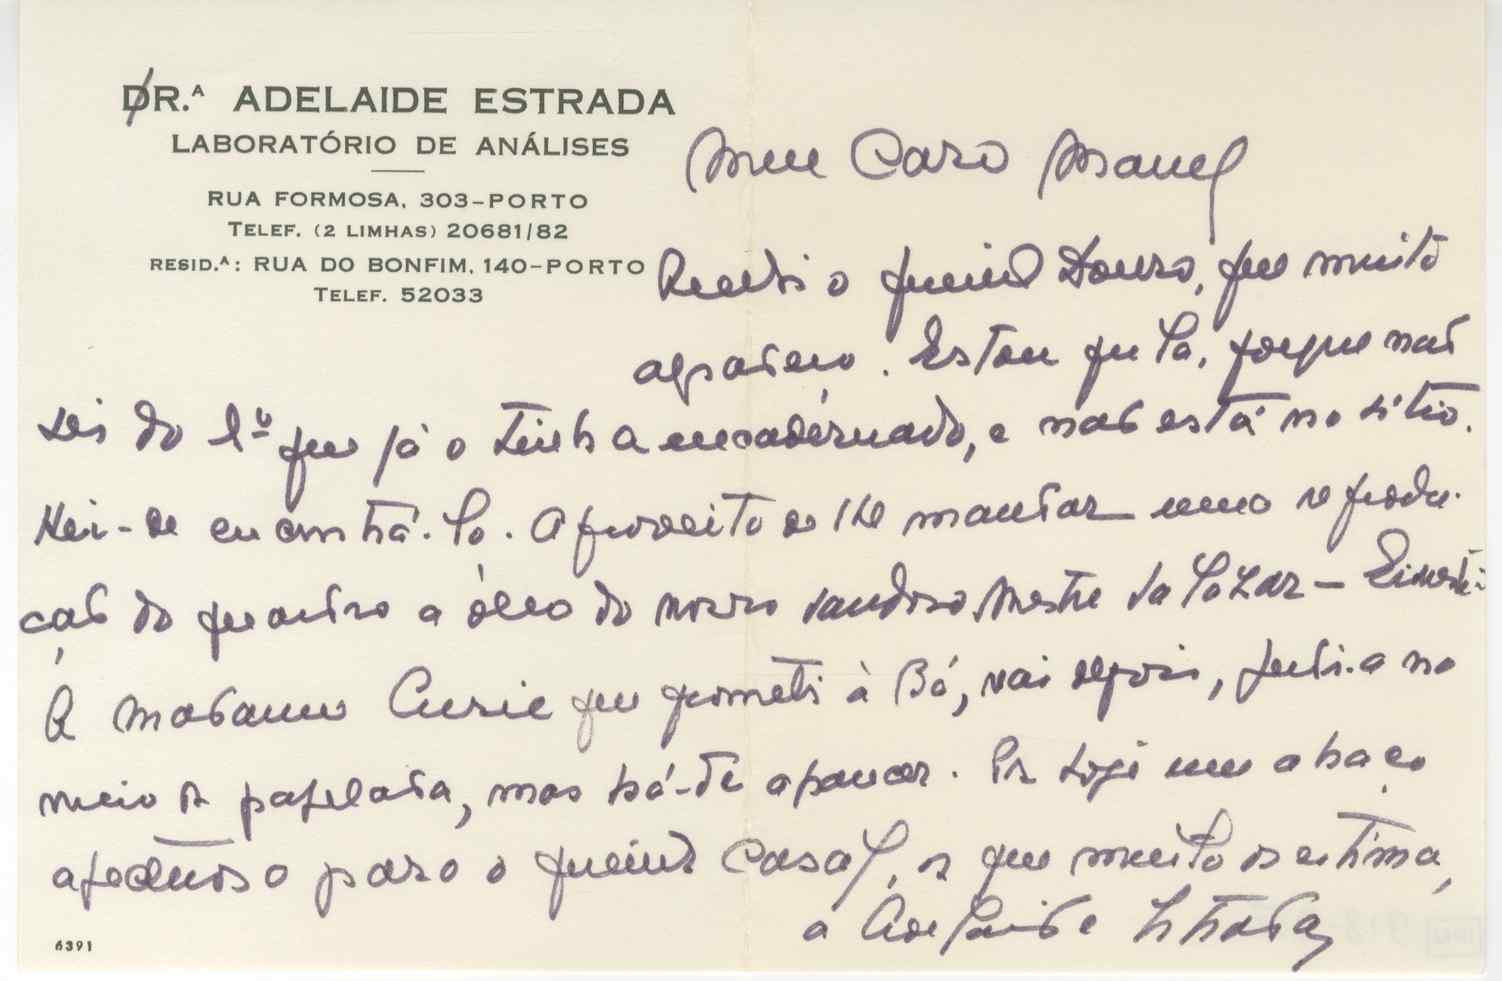 DR.ª ADELAIDE ESTRADA
LABORATÓRIO DE ANÁLISES
RUA FORMOSA, 303-PORTO
TELEF. (2 LIMHAS) 20681/82
RESID.ª: RUA DO BONFIM, 140-PORTO
TELEF. 52033
Meu Caro Manuel
Recebi o querido Douro, que muito
agradeço. Estou feliz, porque não
sei do 1º que já o tinha encadernado, e não está no sítio.
Hei-de encontrá-lo. Aproveito e lhe mandar uma reprodu-
ção do quadro a óleo do nosso saudoso Mestre Salazar –
A Madame Curie que prometi à Bó, vai depois, perdi-a no
meio da papelada, mas há-de aparecer. Por hoje um abraço
afectuoso para o querido Casal, da que muito os estima,
a Adelaide Estrada
6391